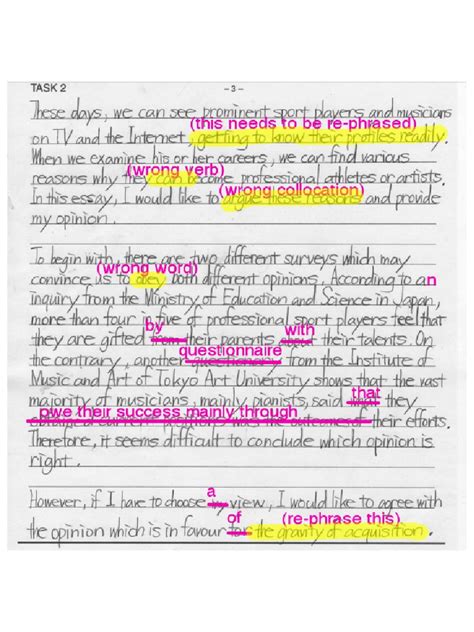 TASK 2
- 3 -
These days, we can see prominent sport players and musicians
(this needs to be re-phrased)
on TV and the Internet, getting to know their profiles readily.
When we examine his or her careers, we can find various
(wrong verb)
reasons why they can become professional athletes or artists.
(wrong collocation)
In this essay, I would like to argue these reasons and provide
my opinion.
To begin with, there are two different surveys which may
(wrong word)
convince us to obey both different opinions. According to an
inquiry from the Ministry of Education and Science in Japan,
more than four in five of professional sport players feel that
by with
they are gifted from their parents about their talents. On
questionnaire
the contrary, another from the Institute of
Music and Art of Tokyo Art University shows that the vast
that
majority of musicians, mainly, pianists, said what they
owe their success mainly through
current positions was the outcomes of their efforts.
Therefore, it seems difficult to conclude which opinion is
right.
a
However, if I have to choose my view, I would like to agree with
of (re-phrase this)
the opinion which is in favour for the gravity of acquisition.